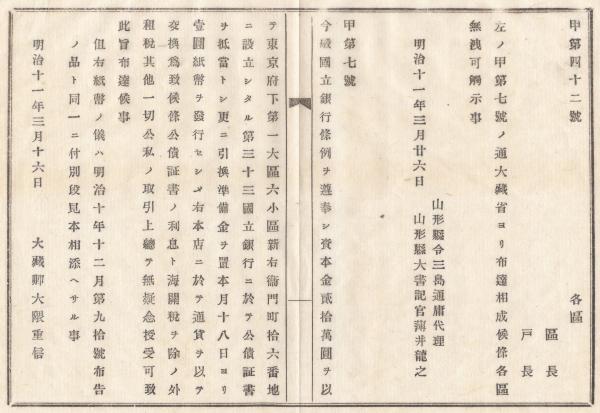 甲第四十二號
各區
區長
戸長
左ノ甲第七號ノ通大藏省ヨリ布達相成候條各區
無洩可觸示事
明治十一年三月廿六日
山形縣令三島通庸代理
山形縣大書記官薄井龍之
甲第七號
今般國立銀行條例ヲ遵奉シ資本金貳拾萬圓ヲ以
テ東京府下第一大區六小區新右衞門町拾六番地
ニ設立シタル第三十三國立銀行ニ於テ公債証書
ヲ抵當トシ更ニ引換準備金ヲ置本月十八日ヨリ
壹圓紙幣ヲ發行セシメ右本店ニ於テ通貨ヲ以テ
交換爲致候條公債証書ノ利息ト海關税ヲ除ノ外
租税其他一切公私ノ取引上總テ無疑念授受可致
此旨布達候事
但右紙幣ノ儀ハ明治十年十二月第九拾號布告
ノ品ト同一ニ付別段見本相添ヘサル事
明治十一年三月十六日
大藏卿大隈重信